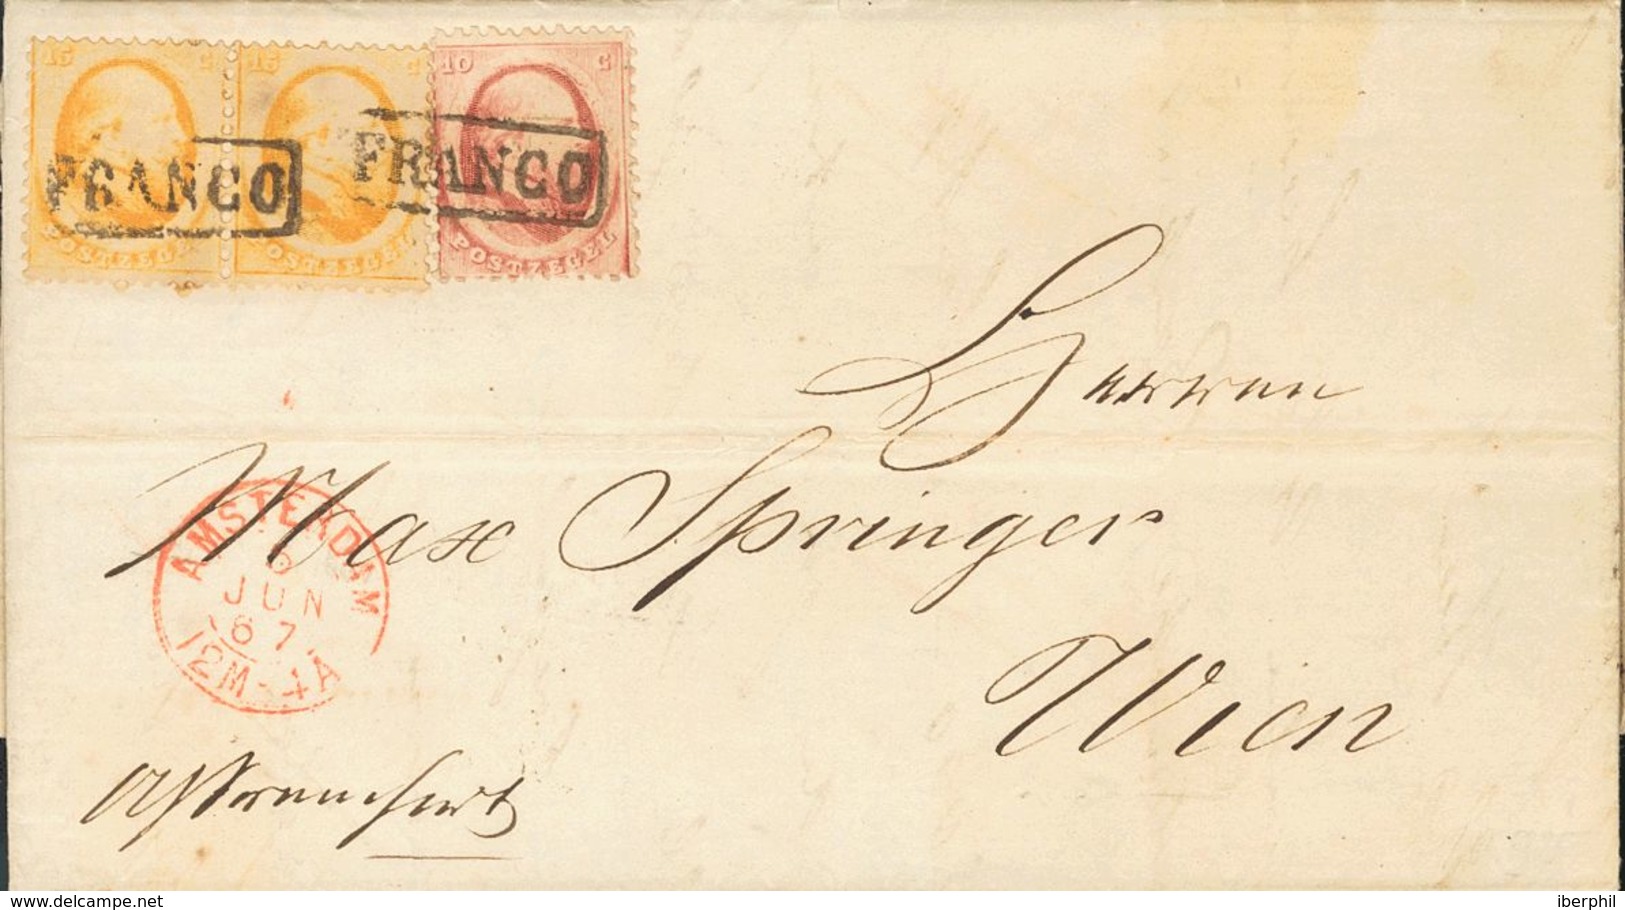 15 C 15 C 10 C
FRANCO FRANCO
POSTZEGEL POSTZEGEL POSTZEGEL
Herren
Max Springer
Wien
AMSTERDAM
6
JUN
67
12M-4A
delcampe.net
iberphil